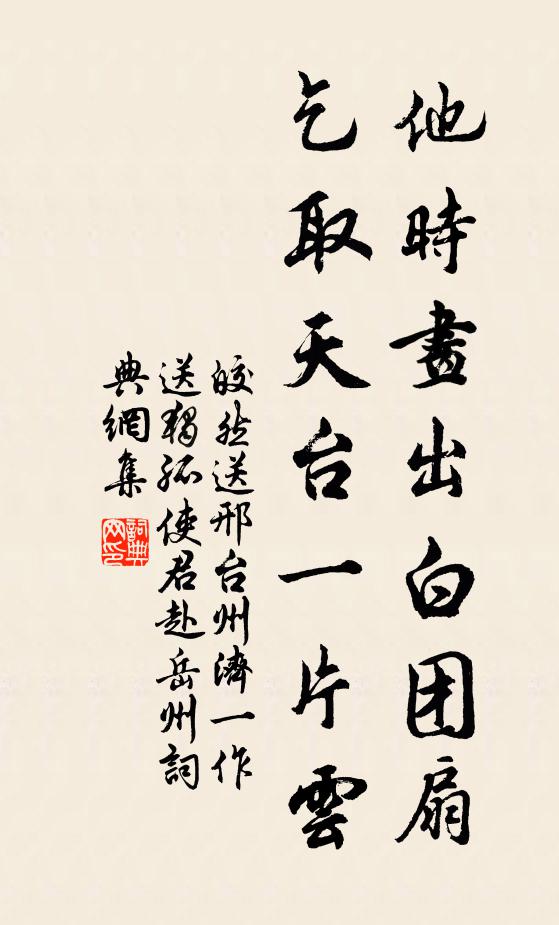 他時畫出白团扇
乞取天台一片雲
皎然送邢台州濟一作
送獨孤使君赴岳州詞
典網集
詞典网印